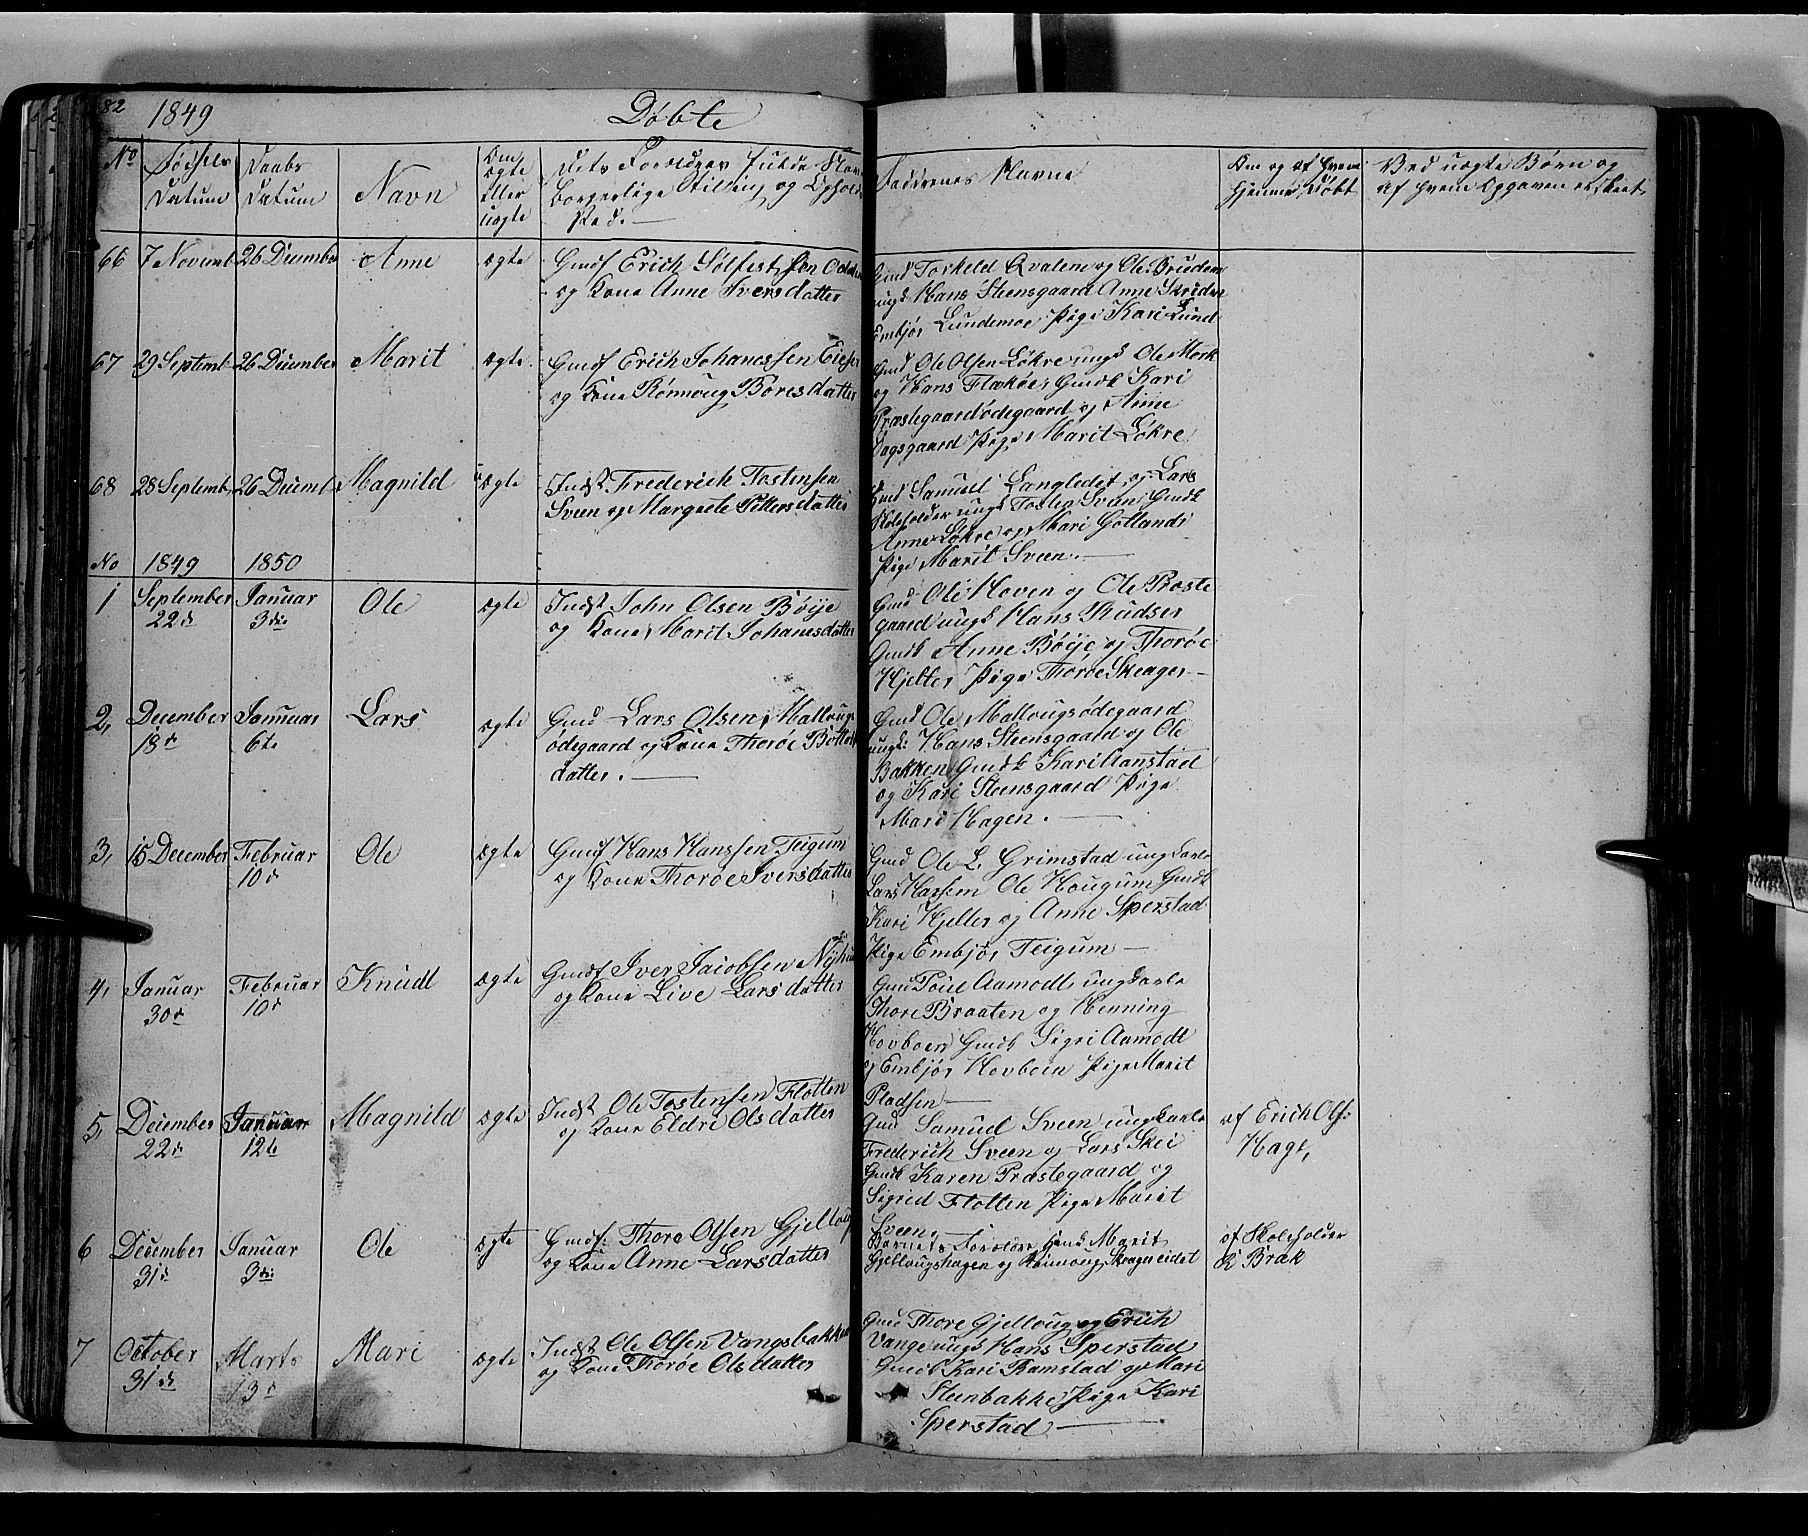 82 1849 Døbte
No Fødsels Datum Daabs Datum Navn Om ægte eller uægte Dets Forældres fulde Navn borgerlige Stilling og Opholds Sted. Faddernes Navne Om og af hvem hjemmedøbt Ved uægte Børn og af hvem Opgaven er skeet
66 7 Novemb 26 Diiember Anne ægte Gmdf Erich Solfestsen
og Kone Anne Iversdatter
Gmd Torkeld Qvalem og Ole Bruden
ungk Hans Steensgaard Anne
Embjør Lundemoe Pige Kari Lund
67 29 Septemb 26 Diiember Marit ægte Gmdf Erich Johanessen
og Kone Rønnoug Børesdatter
Gmd Ole Olsen Løkre ungk Ole Mork
og Hans Gmdk Kari
Præstegaardsødegaard og Anne
Dagsgaard Pige Marit Løkre
68 28 Septemb 26 Diiemb Magnild ægte Indst Frederich Tostensen
Sveen og Margrete Pettersdatter
Gmd Samuel Langledet og Lars
Skoleholder ungk Tosten Sveen Gmdk
Anne Løkre og Mari Gotlands
Pige Marit Sveen.
No 1849 1850
1 September 22d Januar 3die Ole ægte Indst John Olsen Bøije
og Kone Marit Johanesdatter
Gmd Ole Hoven og Ole Præste
gaard ungk Hans Rudser
Gmdk Anne Bøije og Thorøe
Hjelter Pige Thorøe Skeager
2, December 18d Januar 6te Lars ægte Gmd Lars Olsen Malloug
ødegaard og Kone Thorøe
datter.
Gmd Ole Mallougsødegaard
ungk: Hans Steensgaard og Ole
Bakken Gmdk Kari Aanstad
og Kari Steensgaard Pige
Mari Hagen.
3, 15 December Februar 10d Ole ægte Gmdf Hans Hanssen Teigum
og Kone Thorøe Iversdatter
Gmd Ole L. Grimstad ungkarle
Lars Ole Hougum Gmdk
Kari Hjelter og Anne Sperstad
Pige Embjør Teigum
4, Januar 30d Februar 10d Knudt ægte Gmdf Iver Jacobsen
og Kone Live Larsdatter
Gmd Poul Aamodt ungkarle
Thore Braaten og Henning
Hovboen Gmdk Sigri Aamodt
og Embjør Hovboen Pige Marit
Pladsen
5, Deiember 22d Januar 12te Magnild ægte Indst Ole Tostensen Flotten
og Kone Eldri Olsdatter
Gmd Samuel Sveen ungkarle
Frederich Sveen og Lars Skei
Gmdk Karen Præstegaard og
Sigrid Flotten Pige Marit
Sveen,
af Erich Ols:
Hage,
6 Deiember 31d Januar 3die Ole ægte Gmdf: Thore Olsen Gjelloug
og Kone Anne Larsdatter
Barnets Forældre Marit
Gjellougshagen og Rønnoug Skeagereidet
af Skoleholder
Brak
7 October 31d Marts 13d Mari ægte Indst Ole Olsen Vangsbakken
og Kone Thorøe Olsdatter
Gmd Thore Gjelloug og Erich
Vange ungk Hans Sperstad
Gmdk Kari Ramstad og Mari
Steenbakke Pige Kari
Sperstad